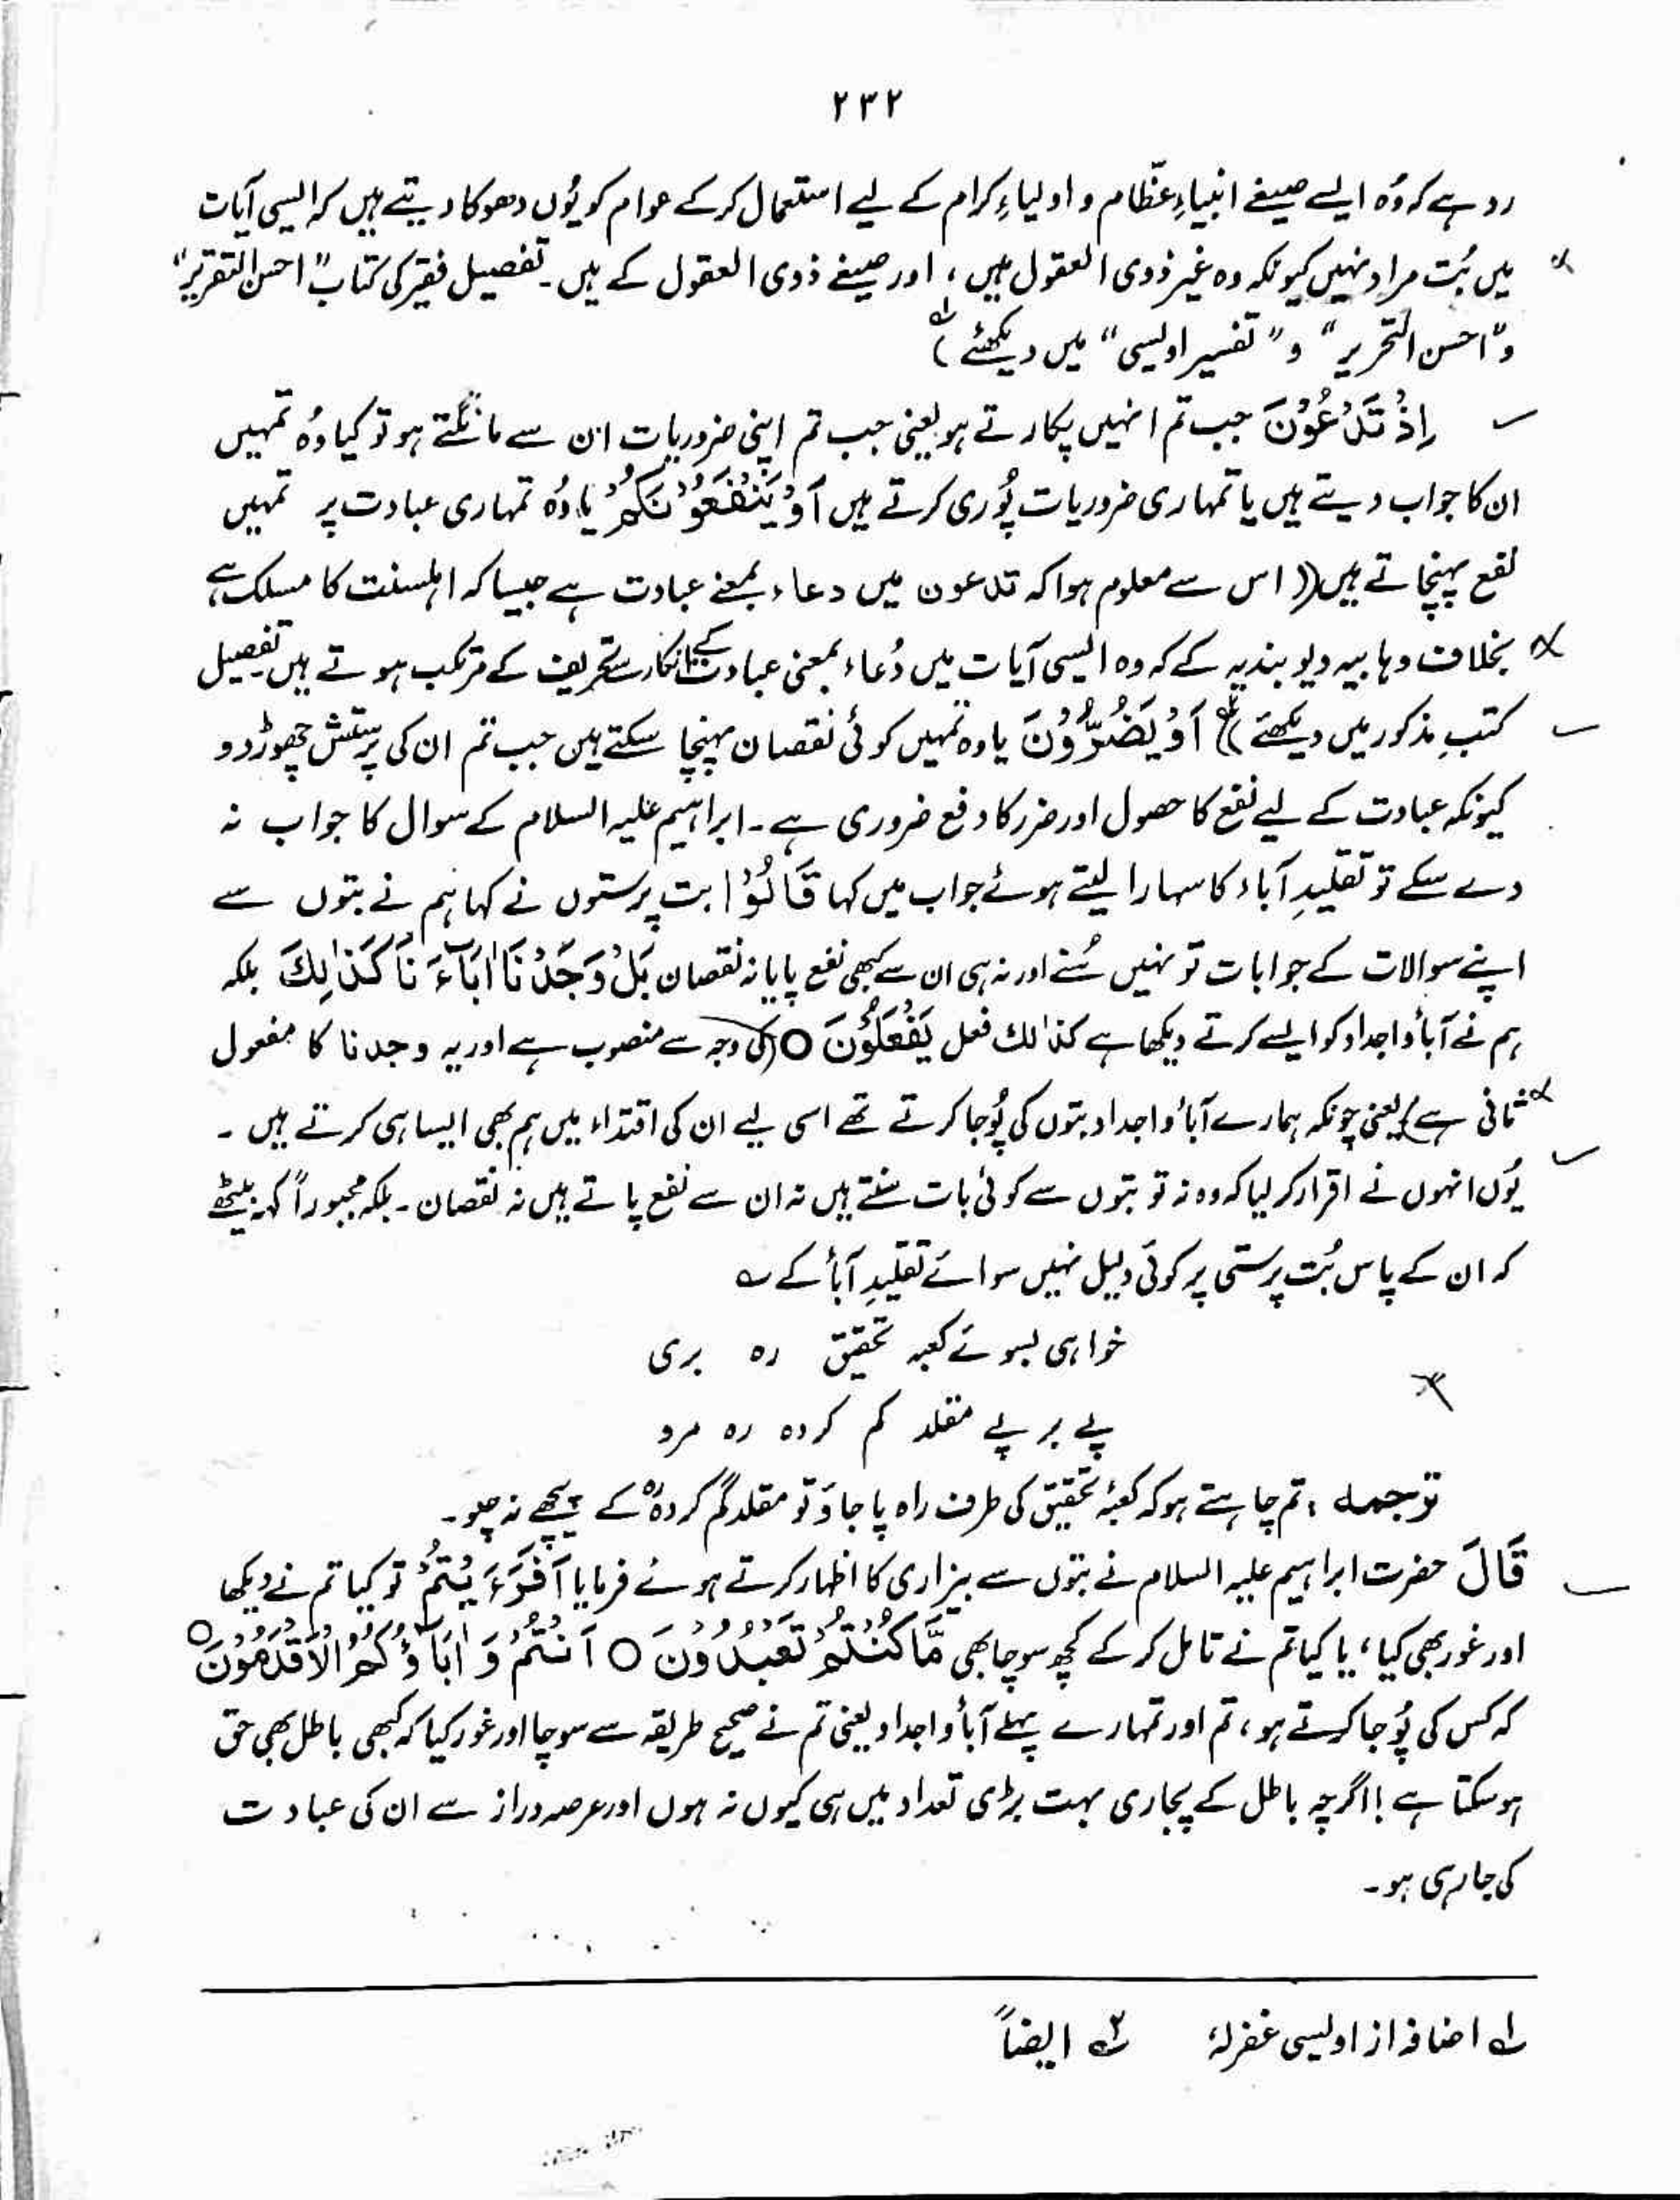 ۲۳۲
رد ہے کہ وُہ ایسے صیغے انبیاءِ عظّام و اولیاءِ کرام کے لیے استعمال کر کے عوام کو یُوں دھوکا دیتے ہیں کہ ایسی آیات
میں بُت مراد نہیں کیونکہ وہ غیر ذوی العقول ہیں ، اور صیغے ذوی العقول کے ہیں ۔ تفصیل فقیر کی کتاب "احسن التقریر"
و "احسن التحریر" و "تفسیر اویسی" میں دیکھئے)؂۱
اِذْ تَدْعُوْنَ جب تم انہیں پکارتے ہو یعنی جب تم اپنی ضروریات ان سے مانگتے ہو تو کیا وُہ تمہیں
ان کا جواب دیتے ہیں یا تمہاری ضروریات پُوری کرتے ہیں اَوْ يَنْفَعُوْنَكُمْ یا وُہ تمہاری عبادت پر تمہیں
نفع پہنچاتے ہیں (( اس سے معلوم ہوا کہ تدعون میں دعاء بمعنے عبادت ہے جیسا کہ اہلسنت کا مسلک ہے
بخلاف وہابیہ دیوبندیہ کے کہ وہ ایسی آیات میں دُعاء بمعنی عبادت کے انکار سے تحریف کے مرتکب ہوتے ہیں تفصیل
کتبِ مذکور میں دیکھئے))؂۲ اَوْ يَضُرُّوْنَ یا وہ تمہیں کوئی نقصان پہنچا سکتے ہیں جب تم ان کی پرستش چھوڑ دو
کیونکہ عبادت کے لیے نفع کا حصول اور ضرر کا دفع ضروری ہے ۔ ابراہیم علیہ السلام کے سوال کا جواب نہ
دے سکے تو تقلیدِ آباء کا سہارا لیتے ہوئے جواب میں کہا قَالُوْا بت پرستوں نے کہا ہم نے بتوں سے
اپنے سوالات کے جوابات تو نہیں سُنے اور نہ ہی ان سے کبھی نفع پایا نہ نقصان بَلْ وَجَدْنَا اٰبَآءَنَا كَذٰلِكَ بلکہ
ہم نے آبأ و اجداد کو ایسے کرتے دیکھا ہے کذٰلک فعل يَفْعَلُوْنَ ○ (کی وجہ سے منصوب ہے اور یہ وجدنا کا مفعول
ثانی ہے) یعنی چونکہ ہمارے آبأ و اجداد بتوں کی پُوجا کرتے تھے اسی لیے ان کی اقتداء میں ہم بھی ایسا ہی کرتے ہیں ۔
یُوں انہوں نے اقرار کر لیا کہ وہ نہ تو بتوں سے کوئی بات سنتے ہیں نہ ان سے نفع پاتے ہیں نہ نقصان ۔ بلکہ مجبوراً کہہ بیٹھے
کہ ان کے پاس بُت پرستی پر کوئی دلیل نہیں سوائے تقلیدِ آبأ کے ؎
خواہی بسوئے کعبہ تحقیق رہ بری
پے بر پے مقلد گم کردہ رہ مرو
ترجمہ : تم چاہتے ہو کہ کعبۂ تحقیق کی طرف راہ پا جاؤ تو مقلد گم کردہ کے پیچھے نہ چلو ۔
قَالَ حضرت ابراہیم علیہ السلام نے بتوں سے بیزاری کا اظہار کرتے ہوئے فرمایا اَفَرَءَيْتُمْ تو کیا تم نے دیکھا
اور غور بھی کیا ، یا کیا تم نے تامل کر کے کچھ سوچا بھی مَّا كُنْتُمْ تَعْبُدُوْنَ ○ اَنْتُمْ وَ اٰبَآؤُكُمُ الْاَقْدَمُوْنَ ○
کہ کس کی پُوجا کرتے ہو ، تم اور تمہارے پہلے آبأ و اجداد یعنی تم نے صحیح طریقہ سے سوچا اور غور کیا کہ کبھی باطل بھی حق
ہو سکتا ہے ! اگرچہ باطل کے پجاری بہت بڑی تعداد میں ہی کیوں نہ ہوں اور عرصہ دراز سے ان کی عبادت
کی جا رہی ہو ۔
؂۱ اضافہ از اویسی غفرلہٗ ؂۲ ایضاً